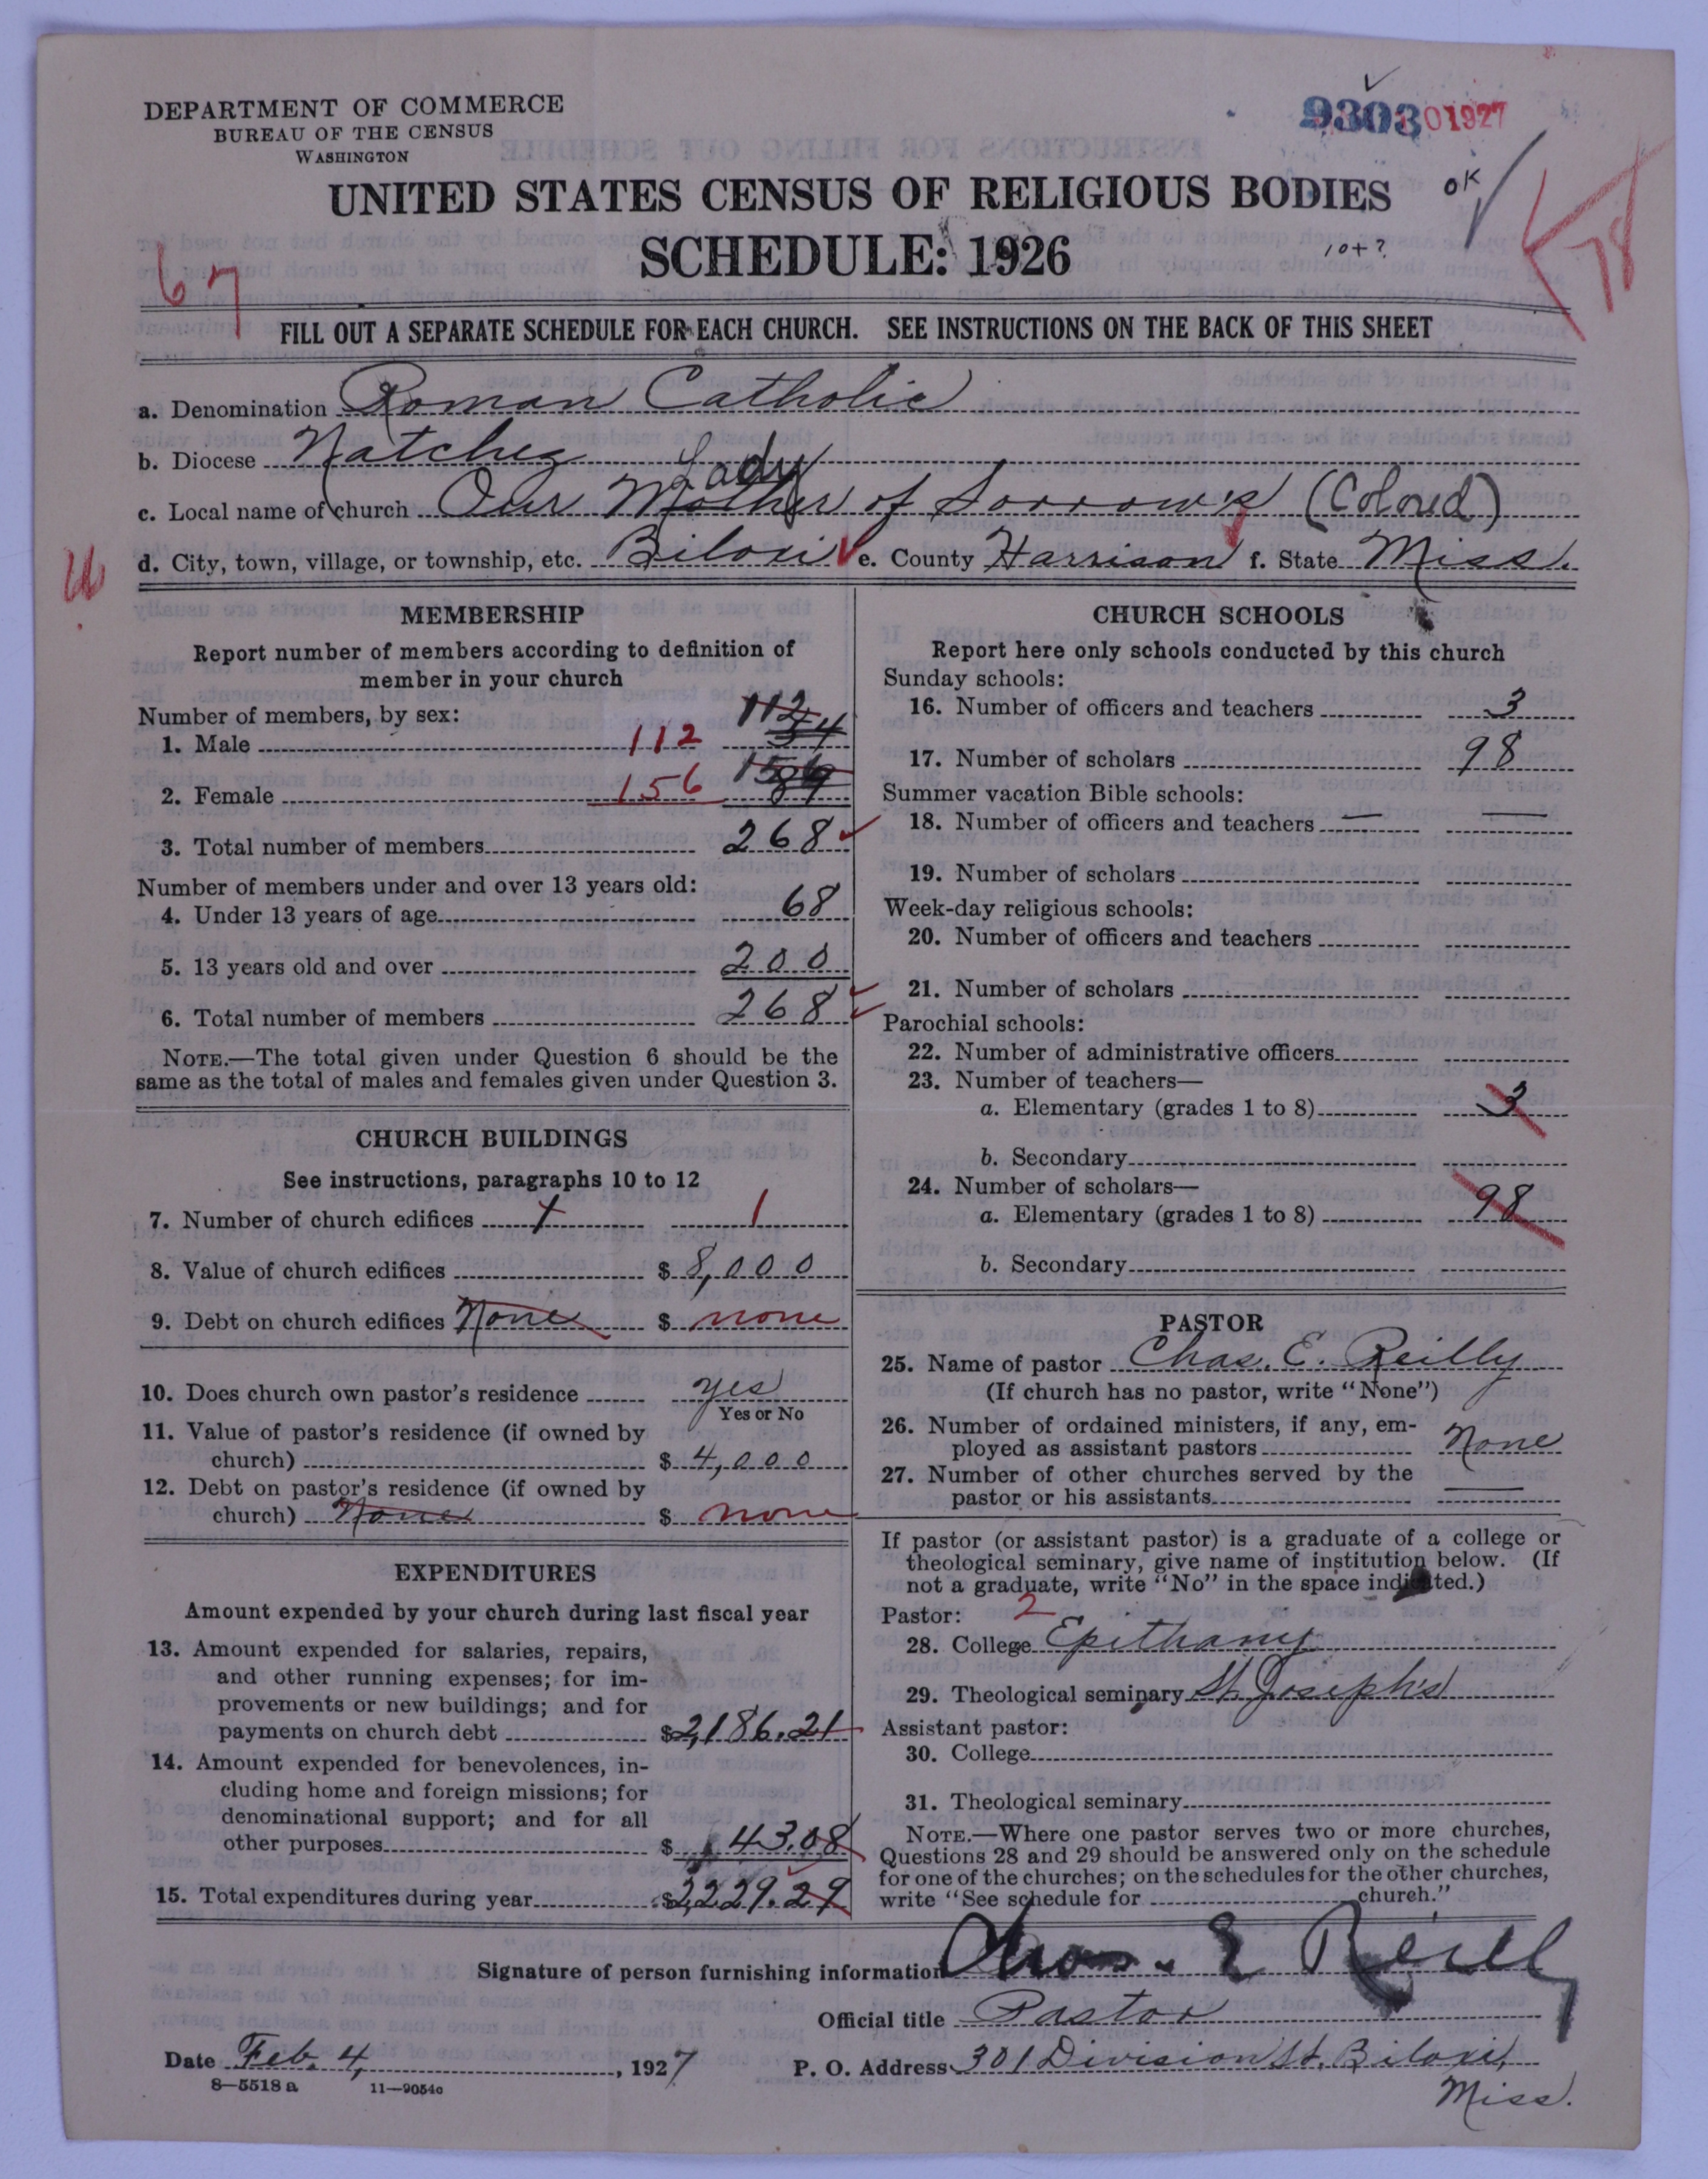 DEPARTMENT OF COMMERCE
BUREAU OF THE CENSUS
WASHINGTON
9303 01927
OK
10+?
78
UNITED STATES CENSUS OF RELIGIOUS BODIES
SCHEDULE: 1926
67
FILL OUT A SEPARATE SCHEDULE FOR EACH CHURCH. SEE INSTRUCTIONS ON THE BACK OF THIS SHEET
a. Denomination Roman Catholic
b. Diocese Natchez
Lady
c. Local name of church Our Mother of Sorrow's (Colored)
d. City, town, village, or township, etc. Biloxi e. County Harrison f. State Miss.
MEMBERSHIP
Report number of members according to definition of
member in your church
Number of members, by sex:
1. Male 112 112 34
2. Female 156 156
3. Total number of members 268
Number of members under and over 13 years old:
4. Under 13 years of age 68
5. 13 years old and over 200
6. Total number of members 268
NOTE.—The total given under Question 6 should be the
same as the total of males and females given under Question 3.
CHURCH BUILDINGS
See instructions, paragraphs 10 to 12
7. Number of church edifices 1 1
8. Value of church edifices $ 8,000
9. Debt on church edifices None $ none
10. Does church own pastor's residence yes
Yes or No
11. Value of pastor's residence (if owned by
church) $ 4,000
12. Debt on pastor's residence (if owned by
church) None $ none
EXPENDITURES
Amount expended by your church during last fiscal year
13. Amount expended for salaries, repairs,
and other running expenses; for im-
provements or new buildings; and for
payments on church debt $2,186.21
14. Amount expended for benevolences, in-
cluding home and foreign missions; for
denominational support; and for all
other purposes $ 43.08
15. Total expenditures during year $2,229.29
CHURCH SCHOOLS
Report here only schools conducted by this church
Sunday schools:
16. Number of officers and teachers 3
17. Number of scholars 98
Summer vacation Bible schools:
18. Number of officers and teachers — —
19. Number of scholars
Week-day religious schools:
20. Number of officers and teachers
21. Number of scholars
Parochial schools:
22. Number of administrative officers
23. Number of teachers—
a. Elementary (grades 1 to 8) 3
b. Secondary
24. Number of scholars—
a. Elementary (grades 1 to 8) 98
b. Secondary
PASTOR
25. Name of pastor Chas. E. Reilly
(If church has no pastor, write "None")
26. Number of ordained ministers, if any, em-
ployed as assistant pastors None
27. Number of other churches served by the
pastor or his assistants —
If pastor (or assistant pastor) is a graduate of a college or
theological seminary, give name of institution below. (If
not a graduate, write "No" in the space indicated.)
Pastor: 2
28. College Epithany
29. Theological seminary St. Joseph's
Assistant pastor:
30. College
31. Theological seminary
NOTE.—Where one pastor serves two or more churches,
Questions 28 and 29 should be answered only on the schedule
for one of the churches; on the schedules for the other churches,
write "See schedule for church."
Signature of person furnishing information Chas. E Reilly
Official title Pastor
Date Feb. 4, 1927 P. O. Address 301 Division St. Biloxi,
Miss.
8—5518 a 11—9054c